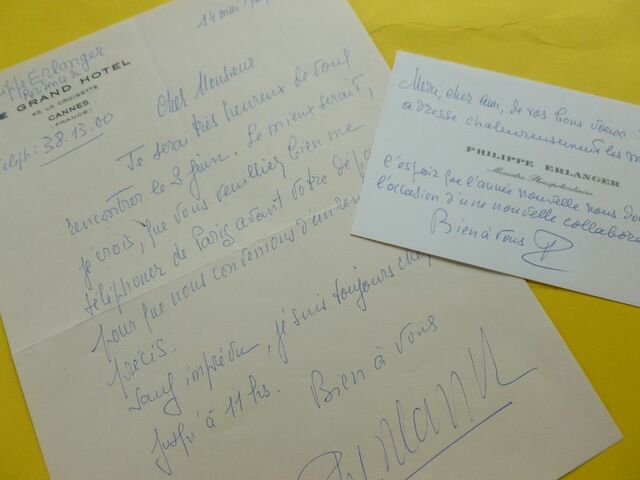 14 mai
Erlanger
Résidence du
GRAND HOTEL
45 LA CROISETTE
CANNES
FRANCE
Téléph: 38.13.00
Cher Monsieur
Je serai très heureux de vous
rencontrer le 2 juin. Le mieux serait,
je crois, que vous veuillez bien me
téléphoner de Paris avant votre
pour que nous convenions d'un
précis.
Sauf imprévu, je suis toujours
jusqu'à 11 hs. Bien à vous
Merci, cher ami, de vos bons voeux.
adresse chaleureusement les
PHILIPPE ERLANGER
Ministre Plénipotentiaire
l'espoir que l'année nouvelle nous
l'occasion d'une nouvelle
Bien à vous